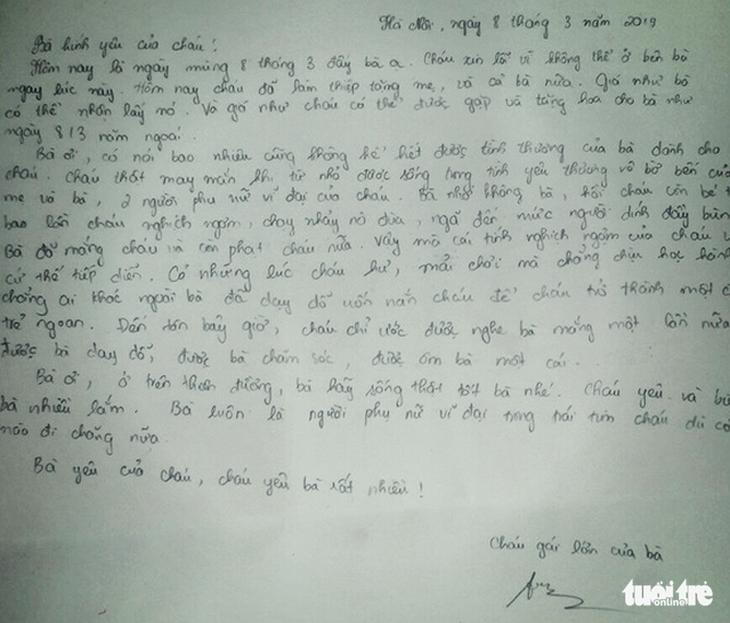 Hà Nội, ngày 8 tháng 3 năm 2019
Bà kính yêu của cháu!
Hôm nay là ngày mùng 8 tháng 3 đấy bà ạ. Cháu xin lỗi vì không thể ở bên bà
ngay lúc này. Hôm nay cháu đã làm thiệp tặng mẹ, và cả bà nữa. Giá như bà
có thể nhận lấy nó. Và giá như cháu có thể được gặp và tặng hoa cho bà như
ngày 8/3 năm ngoái.
Bà ơi, có nói bao nhiêu cũng không kể hết được tình thương của bà dành cho
cháu. Cháu thật may mắn khi từ nhỏ được sống trong tình yêu thương vô bờ bến của
mẹ và bà, 2 người phụ nữ vĩ đại của cháu. Bà nhớ không bà, hồi cháu còn bé
bao lần cháu nghịch ngợm, chạy nhảy nô đùa, ngã đến mức người dính đầy bùn
Bà đã mắng cháu và còn phạt cháu nữa. Vậy mà cái tính nghịch ngợm của cháu
cứ thế tiếp diễn. Có những lúc cháu hư, mải chơi mà chẳng chịu học hành
chẳng ai khác ngoài bà đã dạy dỗ uốn nắn cháu để cháu trở thành một
trẻ ngoan. Đến tận bây giờ, cháu chỉ ước được nghe bà mắng một lần nữa
được bà dạy dỗ, được bà chăm sóc, được ôm bà một cái.
Bà ơi, ở trên thiên đường, bà hãy sống thật tốt bà nhé. Cháu yêu và
bà nhiều lắm. Bà luôn là người phụ nữ vĩ đại trong trái tim cháu dù có
nào đi chăng nữa.
Bà yêu của cháu, cháu yêu bà rất nhiều!
Cháu gái lớn của bà
tuổi trẻ
online